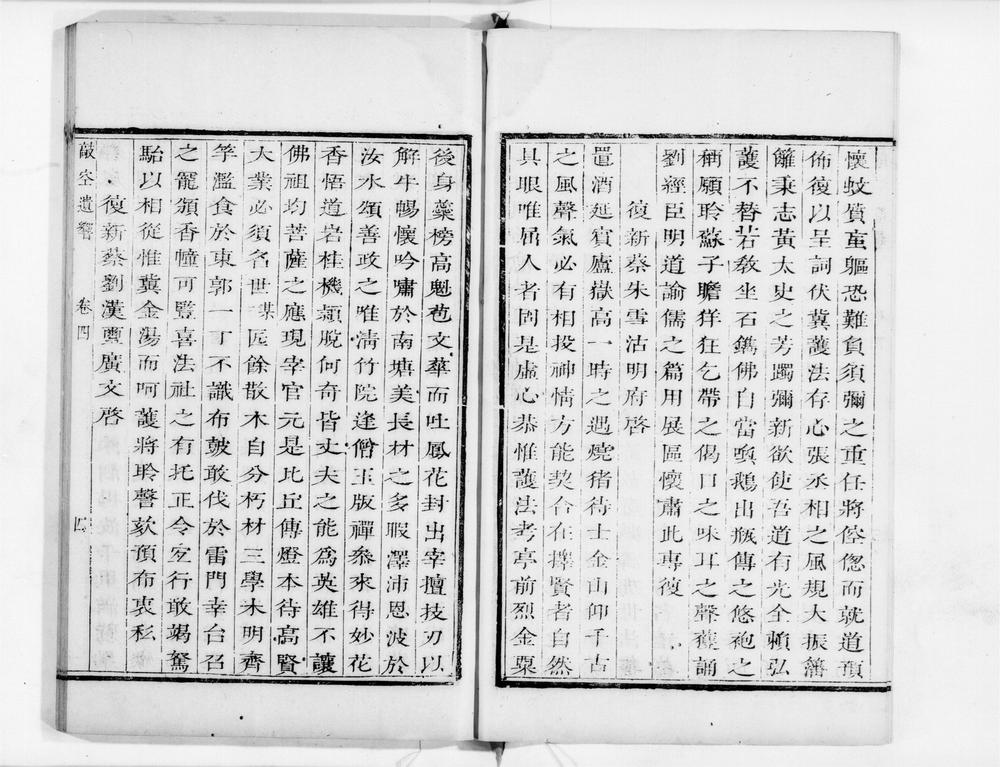 懷蚊質䖟軀恐難負須彌之重任將倥偬而就道預
佈復以呈詞伏冀護法存心張丞相之風規大振籓
籬秉志黃太史之芳躅彌新欲使吾道有光全賴弘
護不替若教坐石鐫佛自當喚鵝出瓶傳之悠袍之
稱願聆蘇子瞻徉狂乞帶之偈口之味耳之聲獲誦
劉經臣明道諭儒之篇用展區懷肅此專復
復新蔡朱雪沽明府啓
置酒延賓廬嶽高一時之遇燒猪待士金山仰千古
之風聲氣必有相投神情方能契合在擇賢者自然
具眼唯屈人者固是虛心恭惟護法考亭前烈金粟
後身蘂榜高魁苞文華而吐鳳花封出宰擅技刃以
解牛暢懷吟嘯於南塘美長材之多暇澤沛恩波於
汝水頌善政之唯清竹院逢僧玉版禪參來得妙花
香悟道岩桂機顙脫何奇皆丈夫之能為英雄不讓
佛祖均菩薩之應現宰官元是比丘傳燈本待高賢
大業必須名世謀匠餘散木自分朽材三學未明齊
竽濫食於東郭一丁不識布皷敢伐於雷門幸台召
之寵頒香幢可豎喜法社之有托正令宐行敢竭駑
駘以相從惟冀金湯而呵護將聆謦欬預布衷私
復新蔡劉漢薑廣文啓
敲空遺響 卷四 四